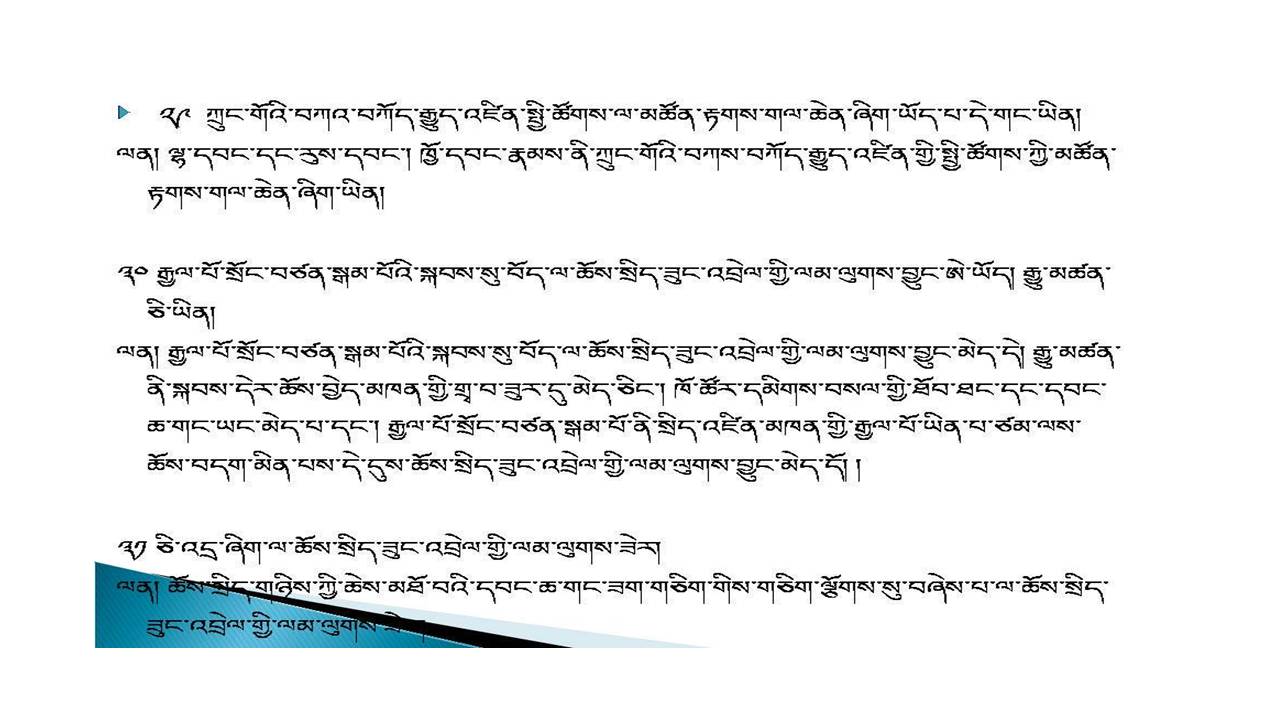 ༢༩ ཀྲུང་གོའི་བཀའ་བཀོད་རྒྱུད་འཛིན་སྤྱི་ཚོགས་ལ་མཚོན་རྟགས་གལ་ཆེན་ཞིག་ཡོད་པ་དེ་གང་ཡིན།
ལན། ལྷ་དབང་དང་རུས་དབང་། ཁྱོ་དབང་རྣམས་ནི་ཀྲུང་གོའི་བཀས་བཀོད་རྒྱུད་འཛིན་གྱི་སྤྱི་ཚོགས་ཀྱི་མཚོན་
རྟགས་གལ་ཆེན་ཞིག་ཡིན།
༣༠ རྒྱལ་པོ་སྲོང་བཙན་སྒམ་པོའི་སྐབས་སུ་བོད་ལ་ཆོས་སྲིད་ཟུང་འབྲེལ་གྱི་ལམ་ལུགས་བྱུང་ཨེ་ཡོད། རྒྱུ་མཚན་
ཅི་ཡིན།
ལན། རྒྱལ་པོ་སྲོང་བཙན་སྒམ་པོའི་སྐབས་སུ་བོད་ལ་ཆོས་སྲིད་ཟུང་འབྲེལ་གྱི་ལམ་ལུགས་བྱུང་མེད་དེ། རྒྱུ་མཚན་
ནི་སྐབས་དེར་ཆོས་བྱེད་མཁན་གྱི་གྲྭ་བ་ཟུར་དུ་མེད་ཅིང་། ཁོ་ཚོར་དམིགས་བསལ་གྱི་ཐོབ་ཐང་དང་དབང་
ཆ་གང་ཡང་མེད་པ་དང་། རྒྱལ་པོ་སྲོང་བཙན་སྒམ་པོ་ནི་སྲིད་འཛིན་མཁན་གྱི་རྒྱལ་པོ་ཡིན་པ་ཙམ་ལས་
ཆོས་བདག་མིན་པས་དེ་དུས་ཆོས་སྲིད་ཟུང་འབྲེལ་གྱི་ལམ་ལུགས་བྱུང་མེད་དོ། །
༣༡ ཅི་འདྲ་ཞིག་ལ་ཆོས་སྲིད་ཟུང་འབྲེལ་གྱི་ལམ་ལུགས་ཟེར།
ལན། ཆོས་སྲིད་གཉིས་ཀྱི་ཆེས་མཐོ་བའི་དབང་ཆ་གང་ཟག་གཅིག་གིས་གཅིག་ལྕོགས་སུ་བཞེས་པ་ལ་ཆོས་སྲིད་
ཟུང་འབྲེལ་གྱི་ལམ་ལུགས་